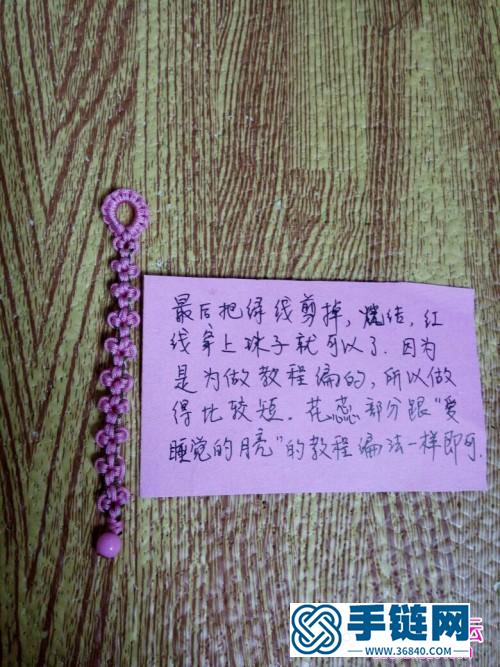 最后把绿线剪掉，烧结，红
线穿上珠子就可以了．因为
是为做教程编的，所以做
得比较短．花蕊部分跟“爱
睡觉的月亮”的教程编法一样即可．
坛
手链网
www.36840.com